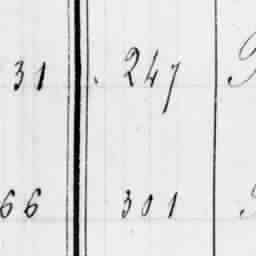 31 247
66 301